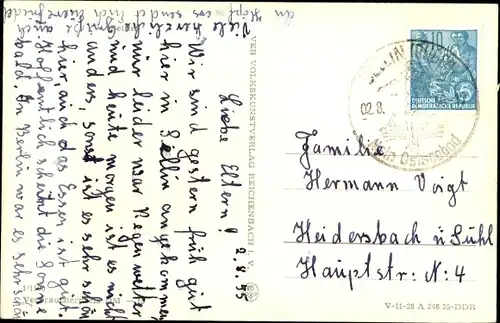 Liebe Eltern! 2.8.55
Wir sind gestern früh gut
hier in Sellin angekommen
nur leider war Regenwetter
und heute morgen ist es nicht
anders, sonst ist es sehr schön
hier auch das Essen ist gut.
Hoffentlich scheint die Sonne
bald. In Berlin war es sehr schön
Viele herzliche Grüße auch
an
sendet Euch Eure
VEB VOLKSKUNSTVERLAG REICHENBACH I. V.
DEUTSCHE
DEMOKRATISCHE REPUBLIK
02.8.
Ostseebad
Familie
Hermann Voigt
Heidersbach ü Suhl
Hauptstr: N: 4
V-11-28 A 246 55-DDR